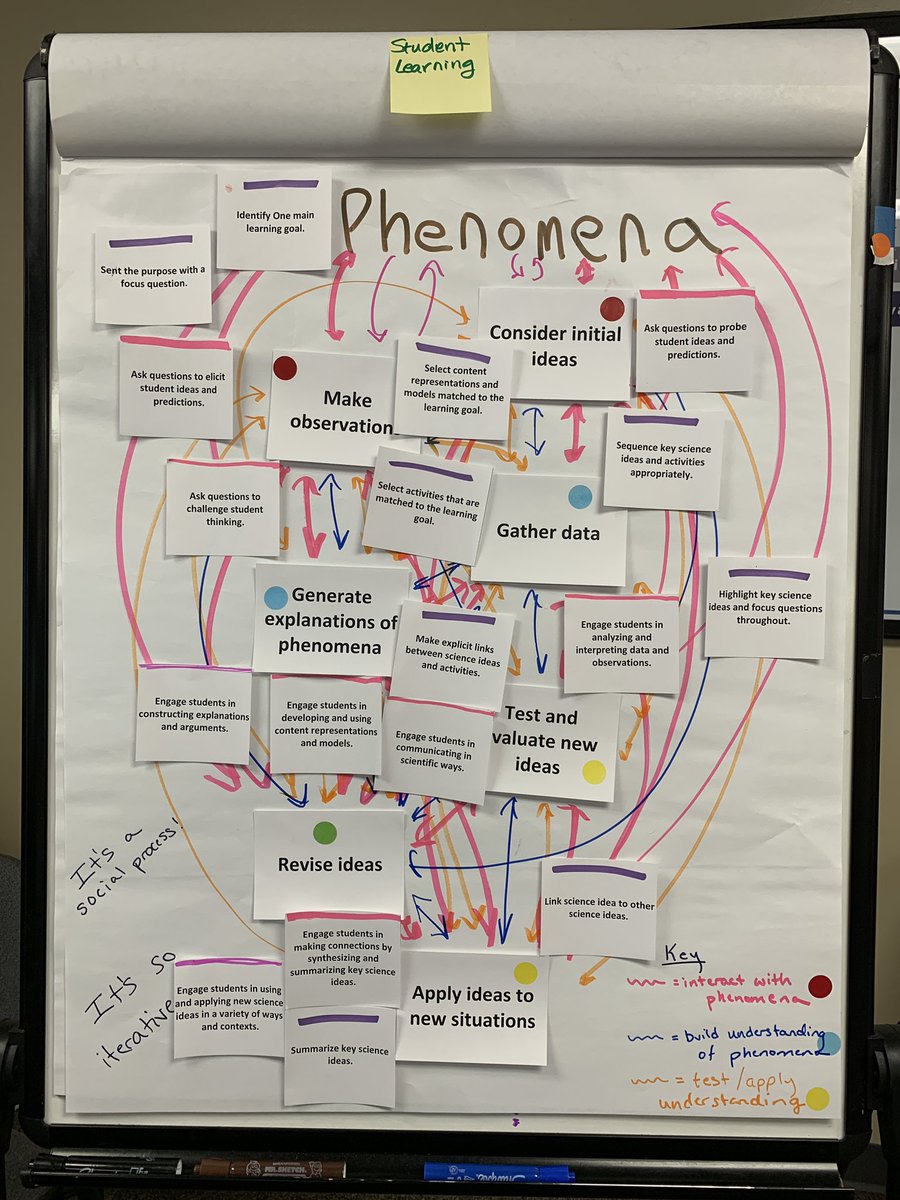 Student
Learning
Phenomena
Identify One main
learning goal.
Sent the purpose with a
focus question.
Consider initial
ideas
Ask questions to probe
student ideas and
predictions.
Ask questions to elicit
student ideas and
predictions.
Make
observation
Select content
representations and
models matched to the
learning goal.
Sequence key science
ideas and activities
appropriately.
Ask questions to
challenge student
thinking.
Select activities that are
matched to the learning
goal.
Gather data
Generate
explanations of
phenomena
Make explicit links
between science ideas
and activities.
Engage students in
analyzing and
interpreting data and
observations.
Highlight key science
ideas and focus questions
throughout.
Engage students in
constructing explanations
and arguments.
Engage students in
developing and using
content representations
and models.
Engage students in
communicating in
scientific ways.
Test and
valuate new
ideas
It's a
social process!
Revise ideas
Link science idea to other
science ideas.
It's so
iterative
Engage students in
making connections by
synthesizing and
summarizing key science
ideas.
Engage students in using
and applying new science
ideas in a variety of ways
and contexts.
Summarize key science
ideas.
Apply ideas to
new situations
Key
= interact with
phenomena
= build understanding
of phenomena
= test/apply
understanding
MR. SKETCH
Sharpie